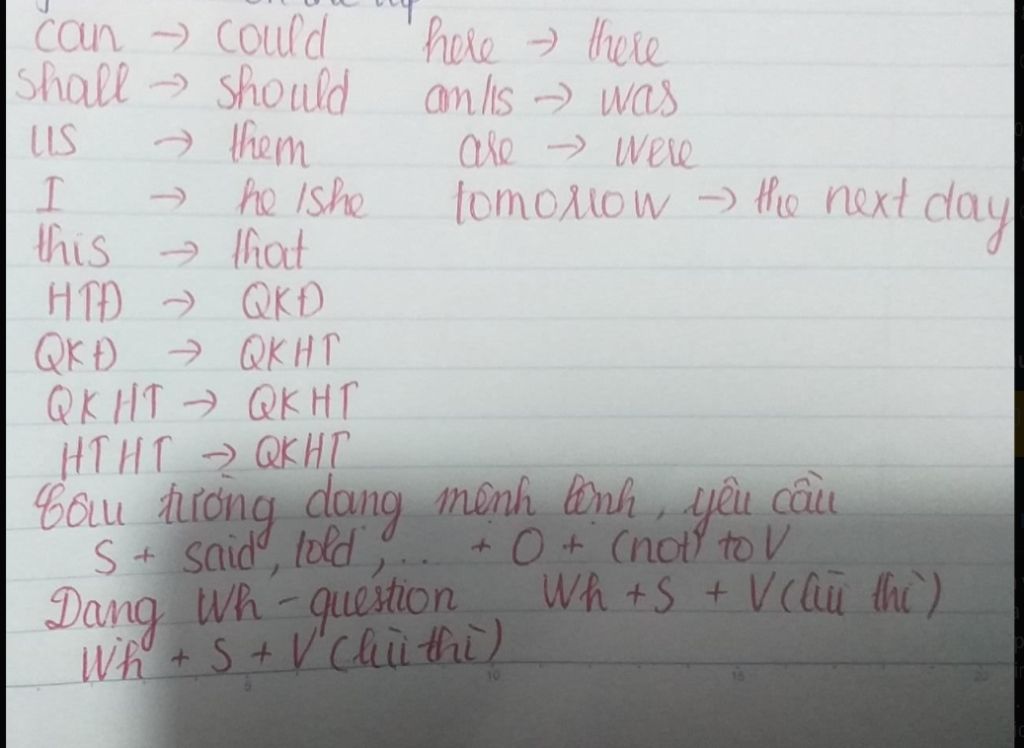 can → could here → there
shall → should am/is → was
us → them are → were
I → he/she tomorrow → the next day
this → that
HTĐ → QKĐ
QKĐ → QKHT
QKHT → QKHT
HTHT → QKHT
Câu tường dạng mệnh lệnh, yêu cầu
S + said, told, ... + O + (not) to V
Dạng Wh - question Wh + S + V (lùi thì)
Wh + S + V (lùi thì)
5 10 15 20